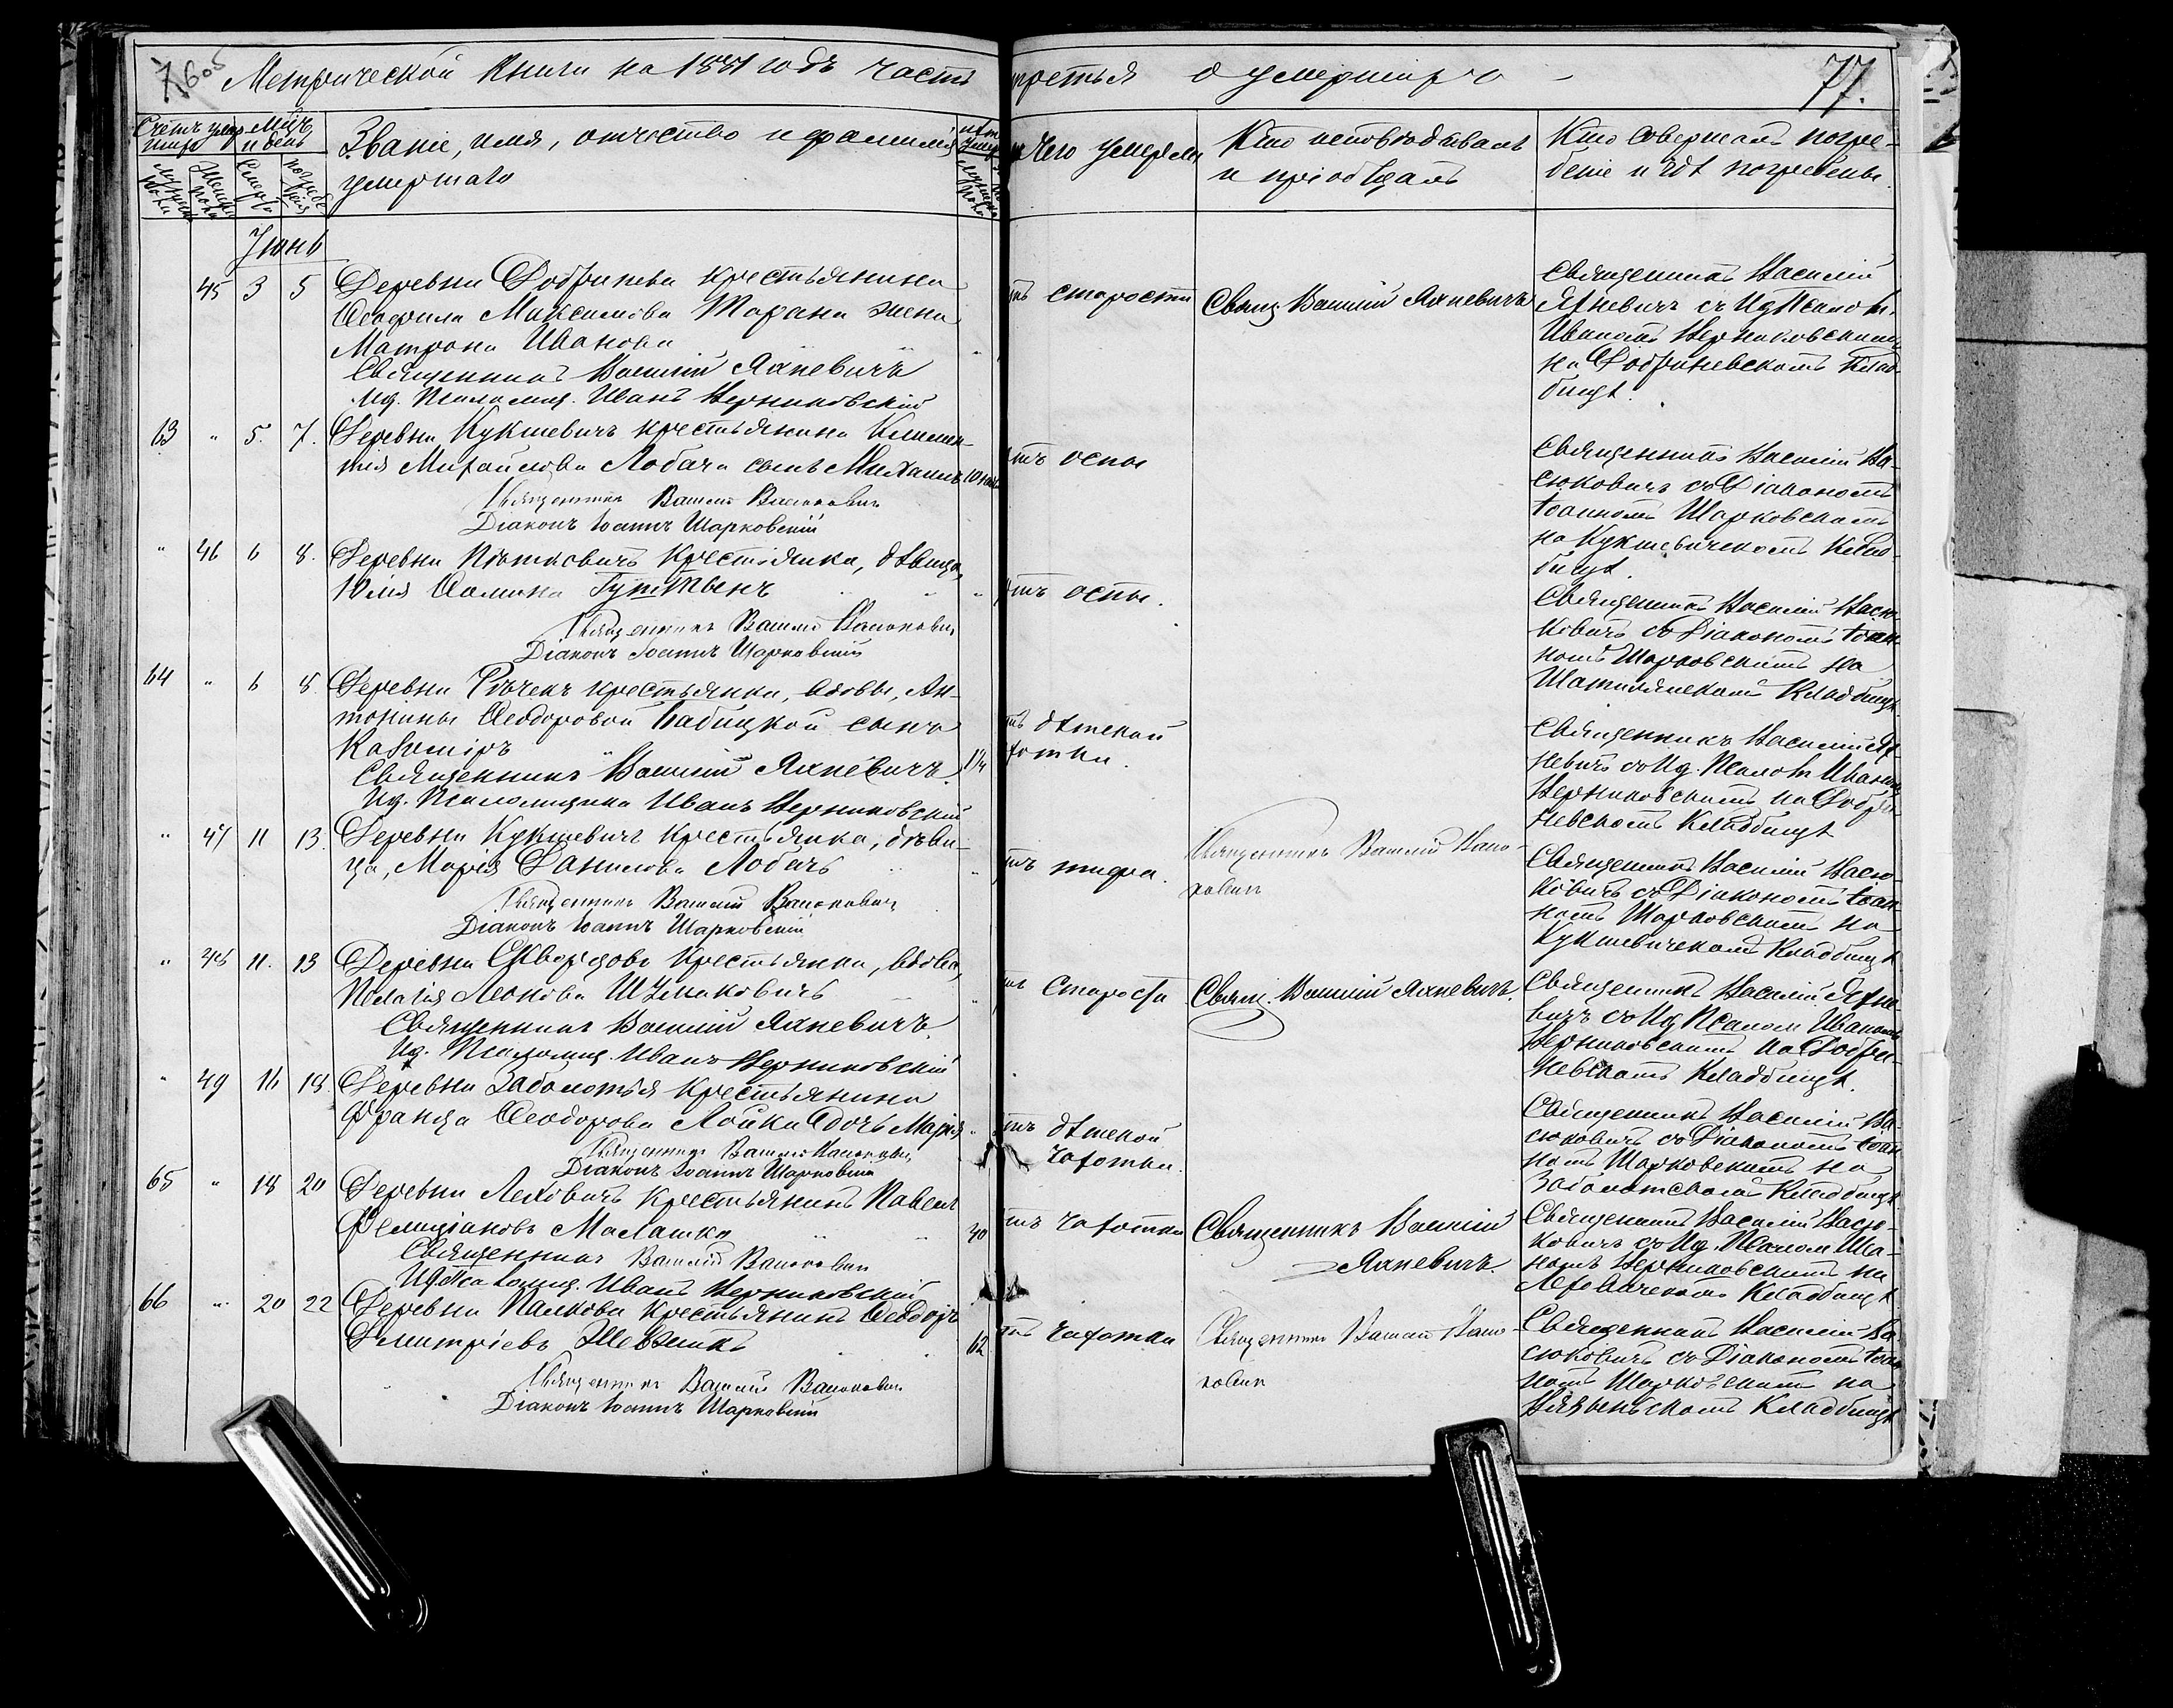 605
Метрической Книги на 1881 годъ часть третья о умершихъ
77.
Счетъ умер-
шихъ
Мѣц.
и день
Звание, имя, отчество и фамилія
умершаго
Чего умерли
Кто исповѣдывалъ
и пріобщалъ
Кто совершалъ погре-
беніе и гдѣ погребены
Іюнь
45 3 5 Деревни Добринева крестьянина
Ѳеофила Максимова Тарана жена
Матрона Иванова
Священникъ Василій Яхневичъ
Ид. Псаломщ. Иванъ Черниковскій
старости
Свящ. Василій Яхневичъ
Священникъ Василій
Яхневичъ съ Ид. Псалом.
Иваномъ Черниковскимъ
на Добриневскомъ клад-
бищѣ.
63 " 5. 7. Деревни Кукшевичъ крестьянина Климен-
тія Михайлова Лобача сынъ Михаилъ 10
Священникъ Василій Васюковичъ
Діаконъ Іоаннъ Шарковскій
отъ оспы
Священникъ Василій Ва-
сюковичъ съ Діакономъ
Іоанномъ Шарковскимъ
на Кукшевичскомъ клад-
бищѣ.
" 46 6 8. Деревни крестьянка, дѣвица,
Юлія Ѳомина
Священникъ Василій Васюковичъ
Діаконъ Іоаннъ Шарковскій
отъ оспы.
Священникъ Василій Васю-
ковичъ съ Діакономъ Іоан-
номъ Шарковскимъ на
кладбищѣ.
64 " 6 8. Деревни Рѣчекъ крестьянки, вдовы, Ан-
тонины Ѳеодоровой Бабицкой сынъ
Казиміръ 1¼
Священникъ Василій Яхневичъ.
Ид. Псаломщика Иванъ Черниковскій
дѣтской
Священникъ Василій Ях-
невичъ съ Ид. Псалом. Иваномъ
Черниковскимъ на Добри-
невскомъ кладбищѣ
" 47 11 13. Деревни Кукшевичъ крестьянка, дѣви-
ца, Марія Данилова Лобачъ
Священникъ Василій Васюковичъ
Діаконъ Іоаннъ Шарковскій
отъ тифа.
Священникъ Василій Васю-
ковичъ
Священникъ Василій Васю-
ковичъ съ Діакономъ Іоан-
номъ Шарковскимъ на
Кукшевичскомъ кладбищѣ
" 48 11. 13 Деревни Сквордово крестьянка, вдова,
Пелагія Леонова Шумаковичъ
Священникъ Василій Яхневичъ.
Ид. Псаломщ. Иванъ Черниковскій
Свящ. Василій Яхневичъ.
Священникъ Василій Яхне-
вичъ съ Ид. Псалом. Иваномъ
Черниковскимъ на Добри-
невскомъ кладбищѣ.
" 49 16 18 Деревни Заболотья крестьянина
Франца Ѳеодорова Лойки дочь Марія "
Священникъ Василій Васюковичъ
Діаконъ Іоаннъ Шарковскій
отъ дѣтской
чахотки.
Священникъ Василій Ва-
сюковичъ съ Діакономъ Іоан-
номъ Шарковскимъ на
Заболотскомъ кладбищѣ
65 " 18 20 Деревни Леховичъ крестьянинъ Павелъ
Фелиціановъ Малашко 40
Священникъ Василій Васюковичъ
Ид. Псаломщ. Иванъ Черниковскій
отъ чахотки
Священникъ Василій
Яхневичъ.
Священникъ Василій Васю-
ковичъ съ Ид. Псалом. Ива-
номъ Черниковскимъ на
кладбищѣ
66 " 20 22 Деревни Панкова крестьянинъ Ѳеодоръ
Дмитріевъ 62
Священникъ Василій Васюковичъ
Діаконъ Іоаннъ Шарковскій
отъ чахотки
Священникъ Василій Васю-
ковичъ
Священникъ Василій Ва-
сюковичъ съ Діакономъ Іоан-
номъ Шарковскимъ на
кладбищѣ